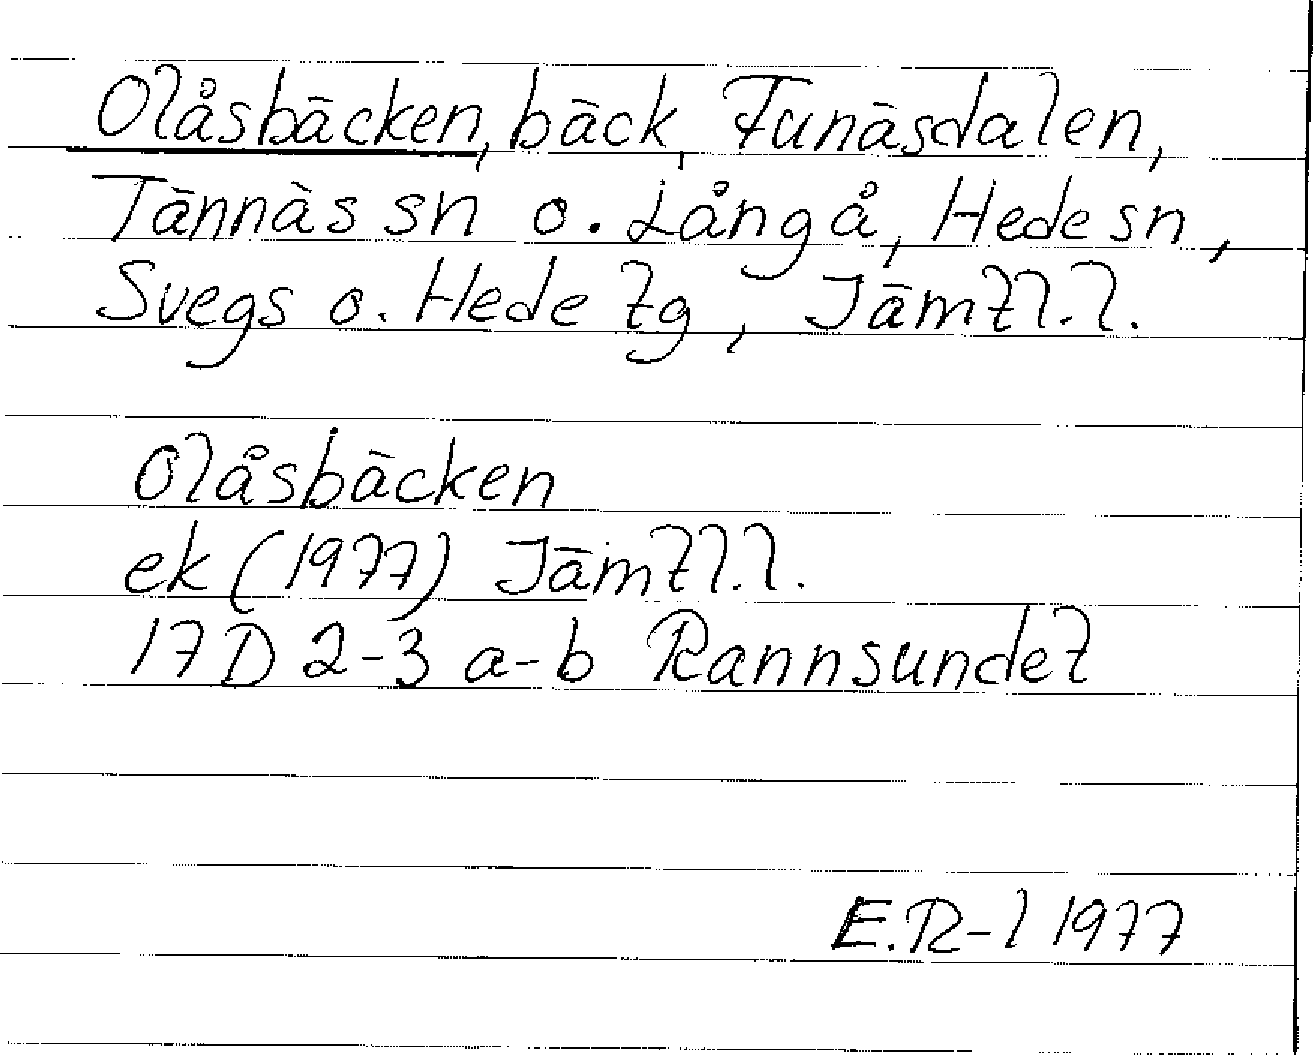 Olåsbäcken, bäck, Funäsdalen,
Tännäs sn o. Långå, Hede sn,
Svegs o. Hede tg, Jämtl.l.
Olåsbäcken
ek (1977) Jämtl.l.
17D 2-3 a-b Rannsundet
E.R-l 1977